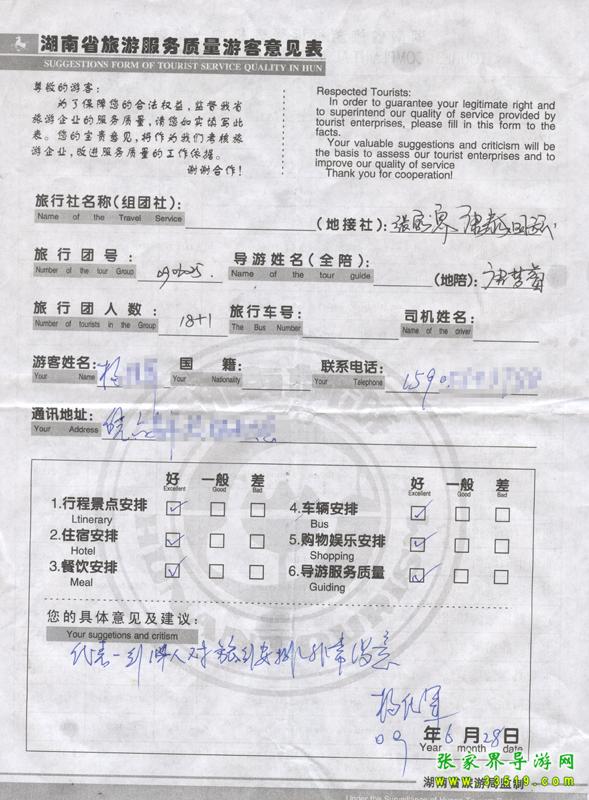 湖南省旅游服务质量游客意见表
SUGGESTIONS FORM OF TOURIST SERVICE QUALITY IN HUN
尊敬的游客：
为了保障您的合法权益，监督我省
旅游企业的服务质量，请您如实填写此
表。您的宝贵意见，将作为我们考核旅
游企业，改进服务质量的工作依据。
谢谢合作！
Respected Tourists:
In order to guarantee your legitimate right and
to superintend our quality of service provided by
tourist enterprises, please fill in this form to the
facts.
Your valuable suggestions and criticism will be
the basis to assess our tourist enterprises and to
improve our quality of service
Thank you for cooperation!
旅行社名称(组团社): (地接社):
Name of the Travel Service
旅行团号: 090625 导游姓名(全陪): (地陪):
Number of the tour Group Name of the tour guide
旅行团人数: 18+1 旅行车号: 司机姓名:
Number of tourists in the Group The Bus Number Name of the driver
游客姓名: 杨 国籍: 联系电话: 1590
Your Name Your Nationality Your Telephone
通讯地址:
Your Address
好 一般 差 好 一般 差
Excellent Good Bad Excellent Good Bad
1.行程景点安排 4.车辆安排
Ltinerary Bus
2.住宿安排 5.购物娱乐安排
Hotel Shopping
3.餐饮安排 6.导游服务质量
Meal Guiding
您的具体意见及建议:
Your suggetions and critism
代表一行18人对旅行安排非常满意
09 年 6 月 28 日
Year month date
湖南省旅游局监制
张家界导游网
www.33519.com